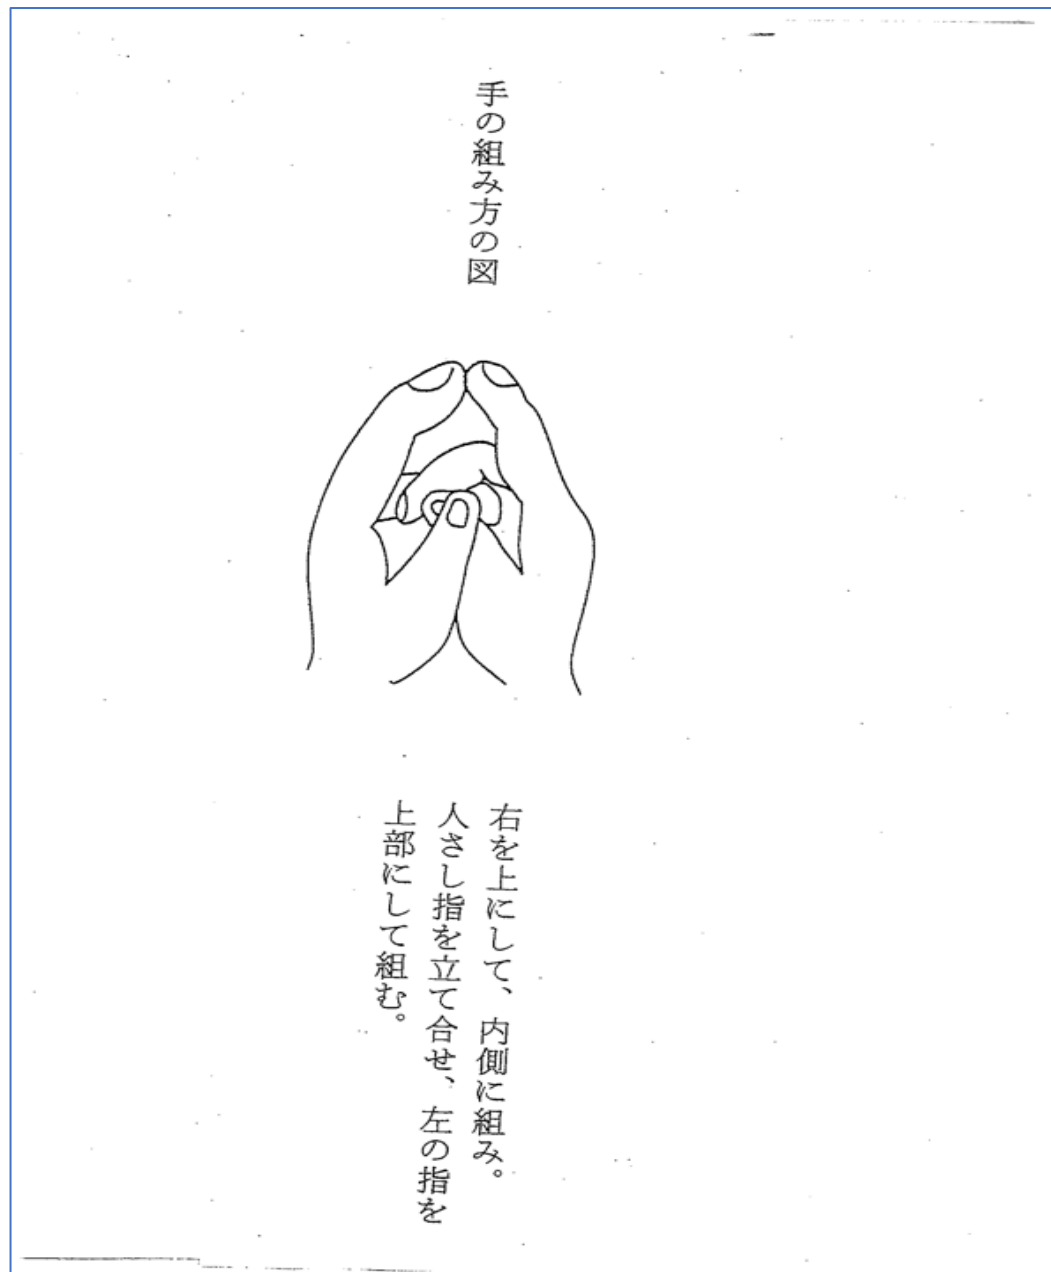 手の組み方の図
右を上にして、内側に組み。
人さし指を立て合せ、左の指を
上部にして組む。